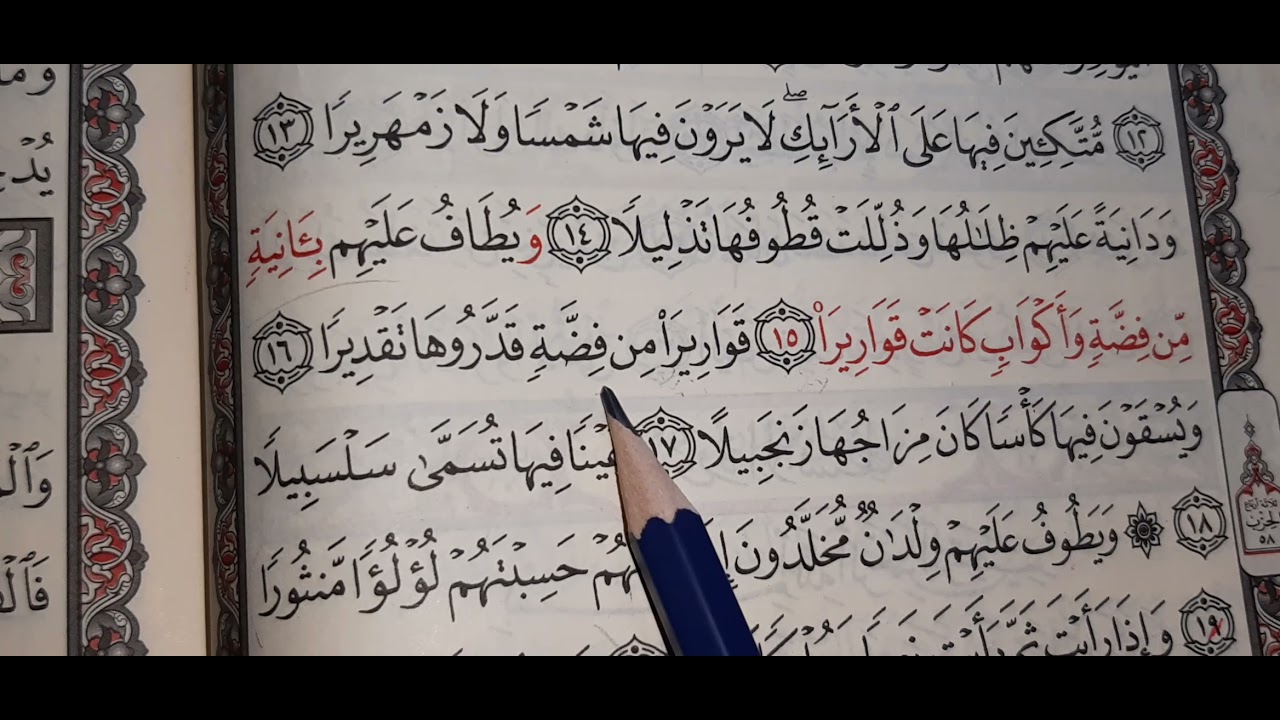 ۝١٢ مُّتَّكِـِٔينَ فِيهَا عَلَى ٱلْأَرَآئِكِ ۖ لَا يَرَوْنَ فِيهَا شَمْسًا وَلَا زَمْهَرِيرًا ۝١٣
وَدَانِيَةً عَلَيْهِمْ ظِلَـٰلُهَا وَذُلِّلَتْ قُطُوفُهَا تَذْلِيلًا ۝١٤ وَيُطَافُ عَلَيْهِم بِـَٔانِيَةٍ
مِّن فِضَّةٍ وَأَكْوَابٍ كَانَتْ قَوَارِيرَا۠ ۝١٥ قَوَارِيرَا۟ مِن فِضَّةٍ قَدَّرُوهَا تَقْدِيرًا ۝١٦
وَيُسْقَوْنَ فِيهَا كَأْسًا كَانَ مِزَاجُهَا زَنجَبِيلًا ۝١٧ عَيْنًا فِيهَا تُسَمَّىٰ سَلْسَبِيلًا
۝١٨ ۞ وَيَطُوفُ عَلَيْهِمْ وِلْدَٰنٌ مُّخَلَّدُونَ حَسِبْتَهُمْ لُؤْلُؤًا مَّنثُورًا
۝١٩ وَإِذَا رَأَيْتَ ثَمَّ رَأَيْتَ
الحزب
٥٨